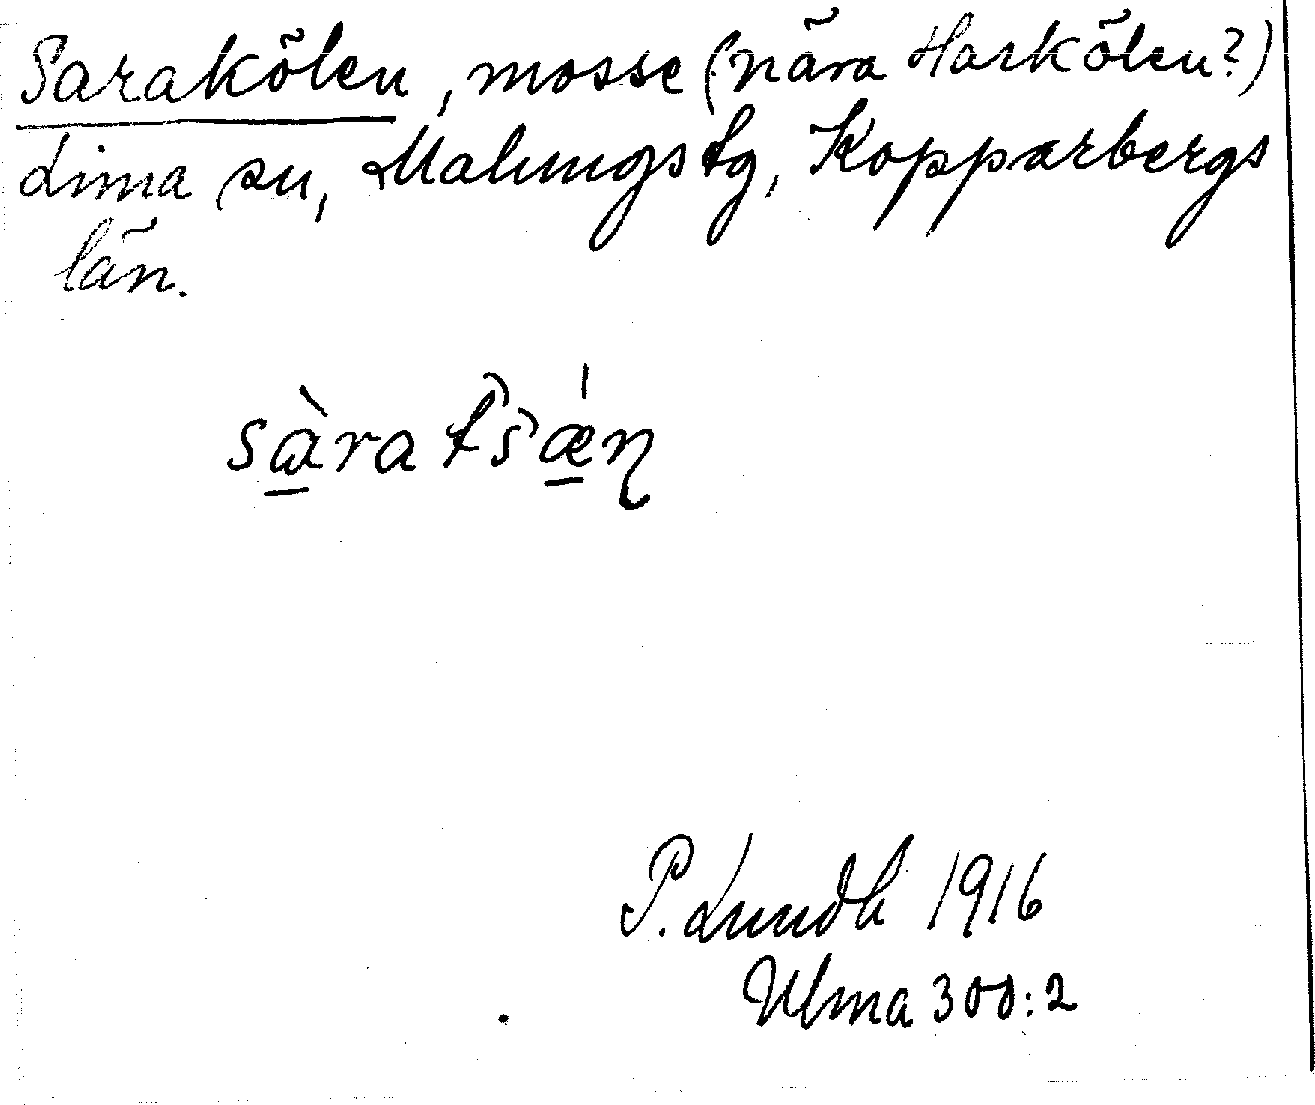 Sarakölen, mosse (nära Harkölen?)
Lima sn, Malungs tg, Kopparbergs
län.
sàra t̑s̑ǽn̥
P. Lundh 1916
Ulma 300:2